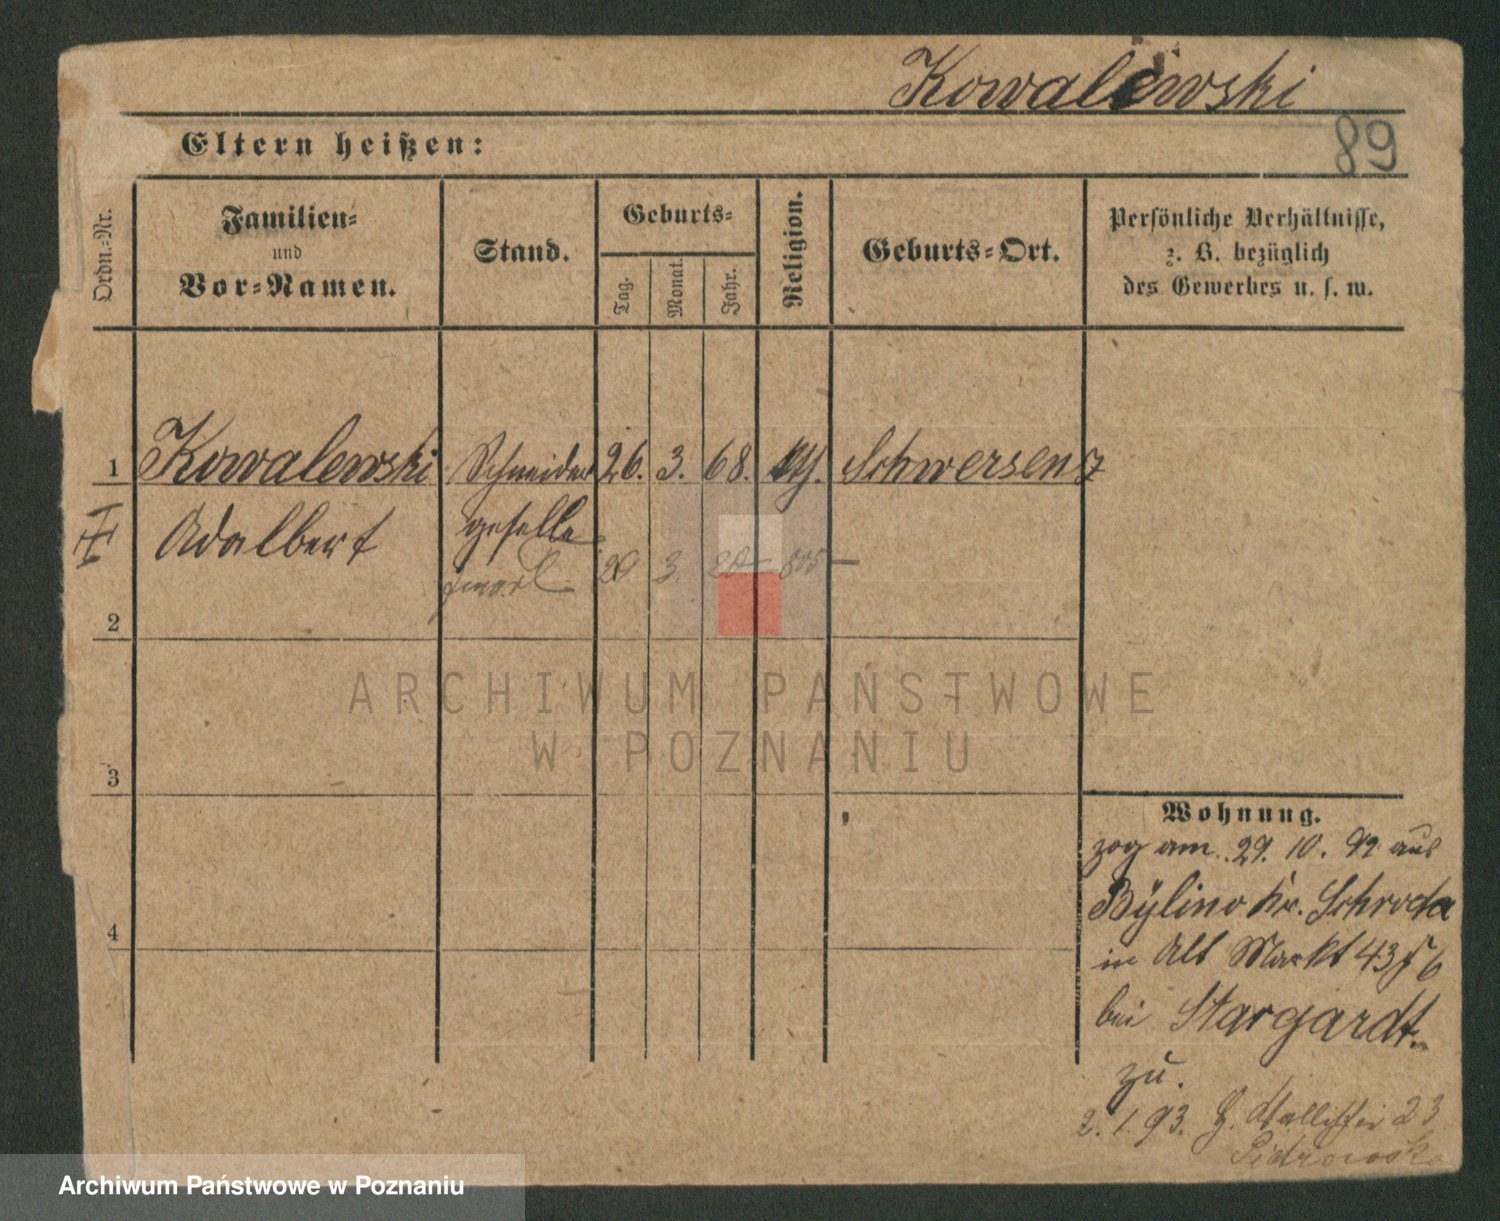 Kowalewski
89
Eltern heißen:
Ordn.-Nr.
Familien-
und
Vor-Namen.
Stand.
Geburts-
Tag.
Monat.
Jahr.
Religion.
Geburts-Ort.
Persönliche Verhältnisse,
z. B. bezüglich
des Gewerbes u. s. w.
1 Kowalewski Schneider 26. 3. 68. Schwersenz
Adalbert geselle
3.
2
3
4
ARCHIWUM PAŃSTWOWE
W POZNANIU
Wohnung.
zog am 29. 10. 92 aus
Bÿlino Kr. Schroda
in Alt Markt 43
bei Stargardt.
zu.
2. 1. 93. 23
Archiwum Państwowe w Poznaniu